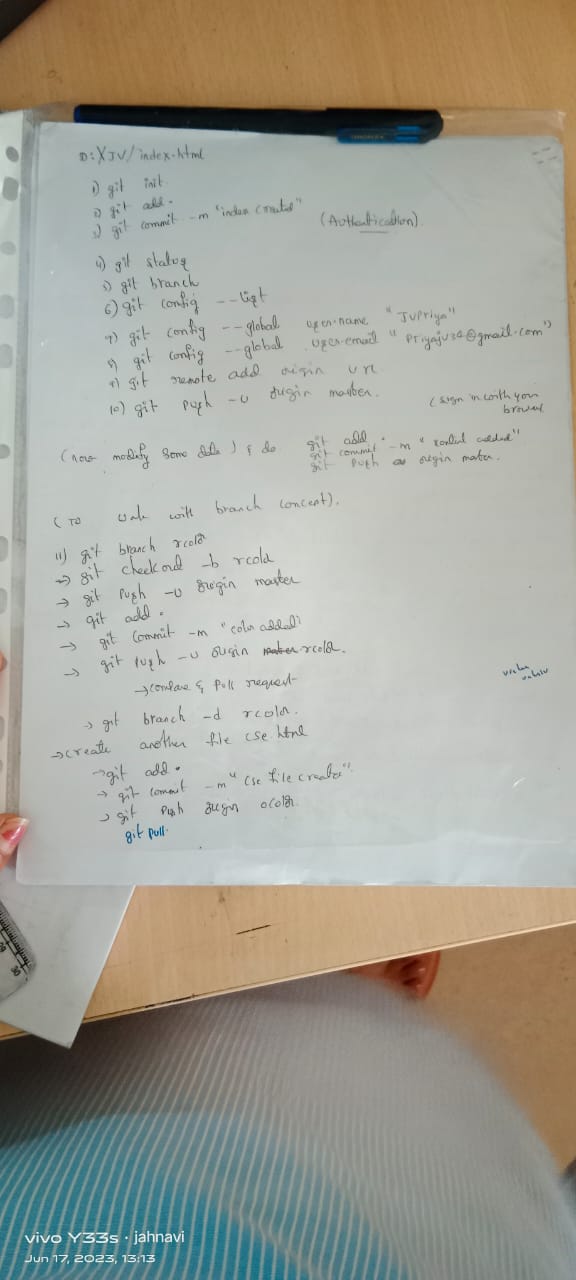 D:\XJV/index.html
1) git init
2) git add .
3) git commit -m "index created"
(Authentication)
4) git status
5) git branch
6) git config --list
7) git config --global user.name "JVPriya"
8) git config --global user.email "Priyajv34@gmail.com")
9) git remote add origin url
10) git push -u origin master.
(sign in with your browser
(now modify some data) & do git add .
git commit -m " added"
git push origin master.
(To work with branch concept).
11) git branch rcolor
→ git checkout -b rcolor
→ git push -u origin master
→ git add .
→ git commit -m "color added"
→ git push -u origin rcolor.
→ compare & pull request
→ git branch -d rcolor.
→ create another file cse.html
→ git add .
→ git commit -m "cse file created".
→ git push origin rcolor.
git pull.
vivo Y33s · jahnavi
Jun 17, 2023, 13:13